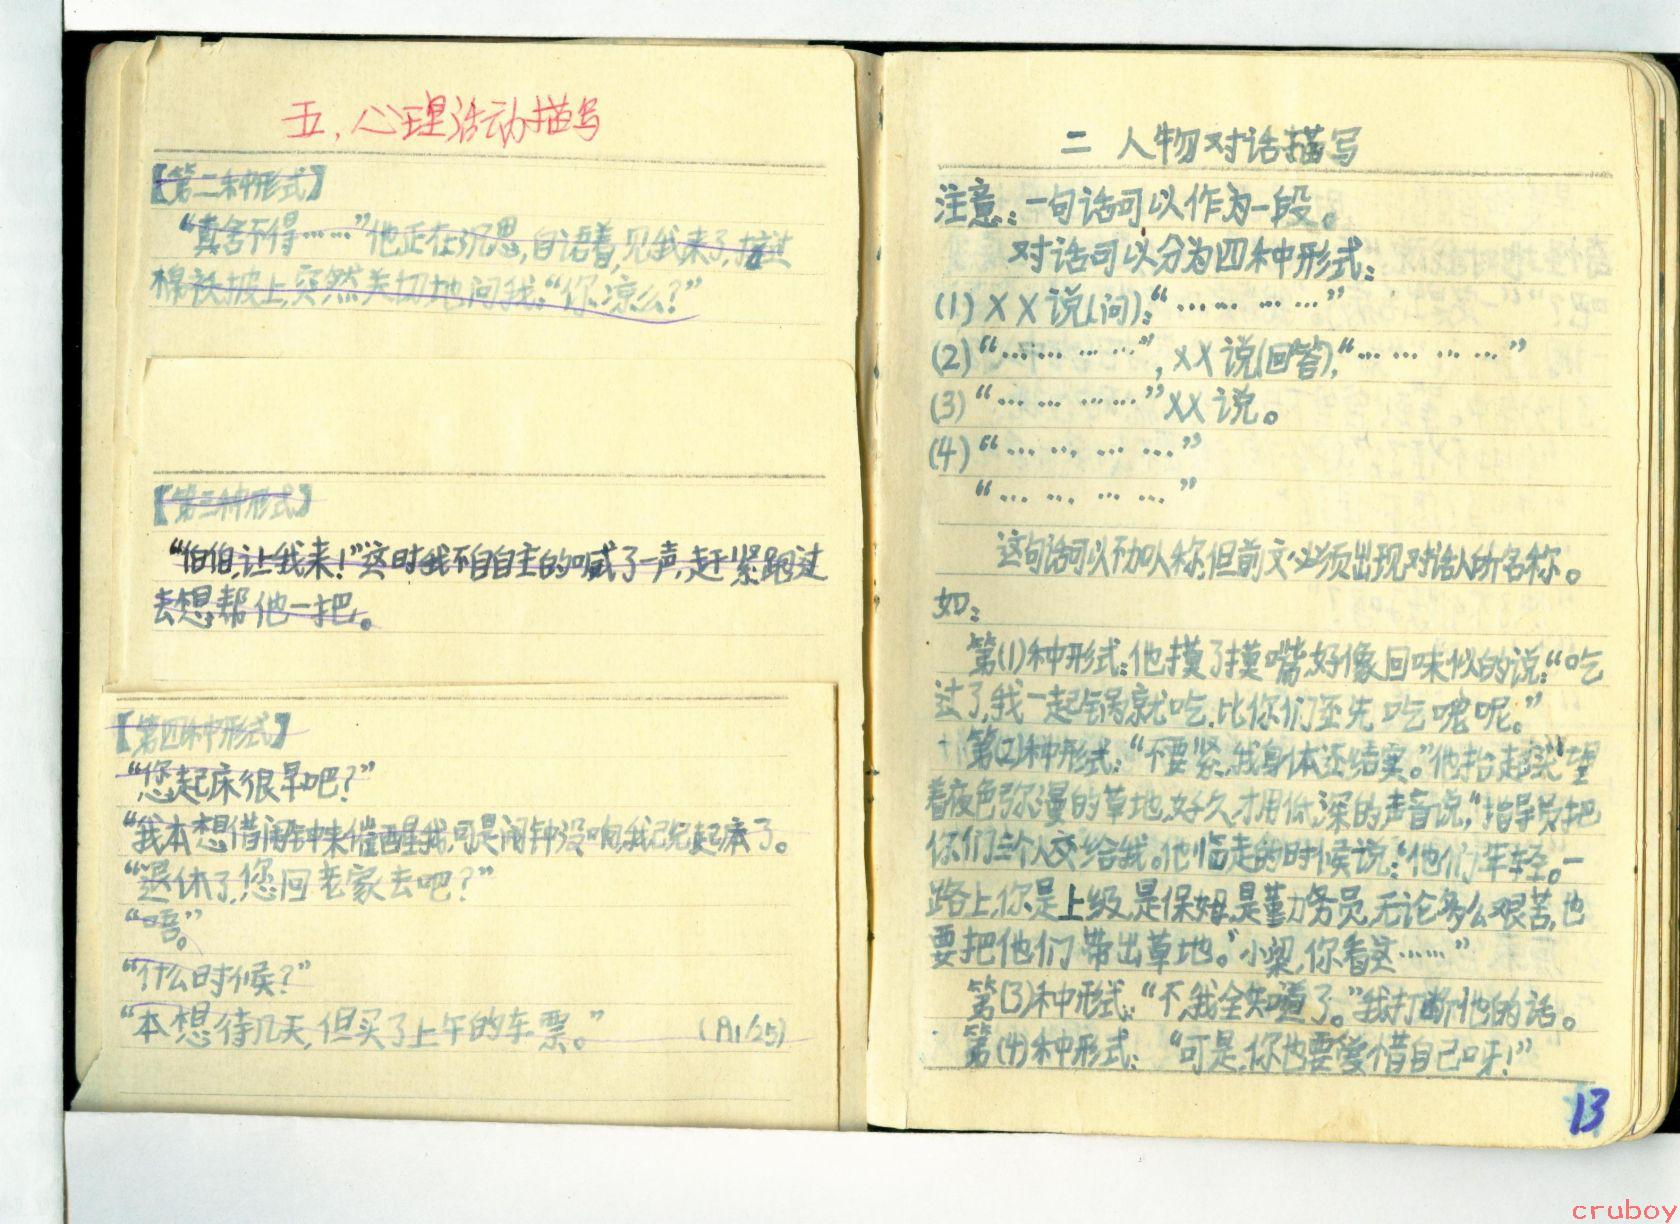 五、心理活动描写
【第二种形式】
“真舍不得……”他正在沉思,自语着,见我来了,接过
棉袄披上,突然关切地问我:“你凉么?”
【第三种形式】
“伯伯,让我来!”这时我不自自主的喊了一声,赶紧跑过
去想帮他一把。
【第四种形式】
“您起床很早吧?”
“我本想借闹钟来催醒我,可是闹钟没响,我已经起床了。
“退休了,您回老家去吧?”
“唔”。
“什么时候?”
“本想待几天,但买了上午的车票。” (A1/25)
二 人物对话描写
注意:一句话可以作为一段。
对话可以分为四种形式:
(1) XX说(问):“… … … …”
(2) “… … … …”,XX说(回答),“… … … …”
(3) “… … … …”XX说。
(4) “… … … …”
“… … … …”
这句话可以不加人称,但前文必须出现对话人的名称。
如:
第(1)种形式:他摸了摸嘴,好像回味似的说:“吃
过了,我一起锅就吃,比你们还先吃呢。”
第(2)种形式:“不要紧,我身体还结实。”他抬起头望
着夜色弥漫的草地,好久,才用低深的声音说,“指导员把
你们三个人交给我。他临走的时候说:‘他们年轻。一
路上,你是上级,是保姆,是勤务员,无论多么艰苦,也
要把他们带出草地。’小梁,你看这……”
第(3)种形式:“不,我全知道了。”我打断他的话。
第(4)种形式:“可是,你也要爱惜自己呀!”
13
cruboy